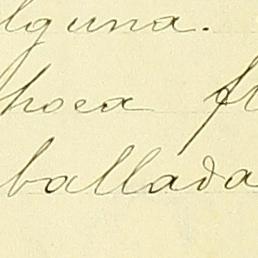 lguna.
hoca fl
ballada